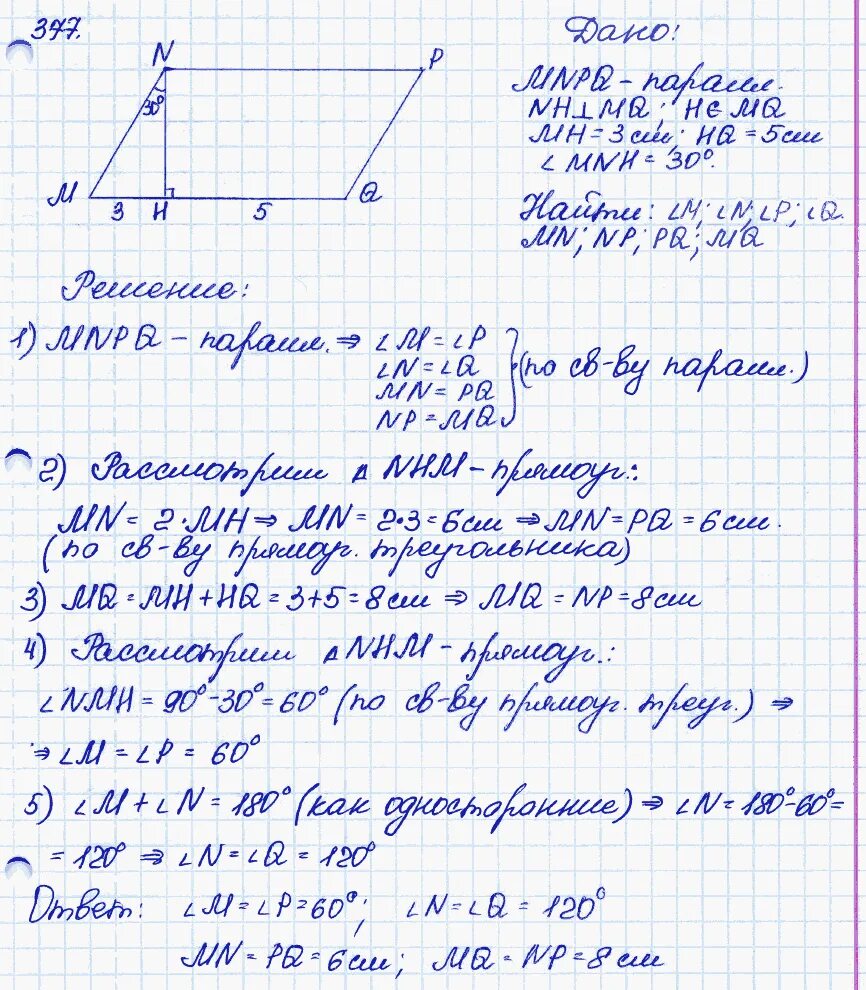 377.
N
P
30°
M
3
H
5
Q
Дано:
MNPQ - паралл.
NH⊥MQ; H∈MQ
MH = 3 см; HQ = 5 см
∠MNH = 30°.
Найти: ∠M; ∠N; ∠P; ∠Q.
MN; NP; PQ; MQ
Решение:
1) MNPQ - паралл. ⇒ ∠M = ∠P
∠N = ∠Q
MN = PQ
NP = MQ
} (по св-ву паралл.)
2) Рассмотрим △ NHM - прямоуг.:
MN = 2·MH ⇒ MN = 2·3 = 6 см ⇒ MN = PQ = 6 см.
(по св-ву прямоуг. треугольника)
3) MQ = MH + HQ = 3+5 = 8 см ⇒ MQ = NP = 8 см
4) Рассмотрим △ NHM - прямоуг.:
∠NMH = 90°-30° = 60° (по св-ву прямоуг. треуг.) ⇒
⇒ ∠M = ∠P = 60°
5) ∠M + ∠N = 180° (как односторанние) ⇒ ∠N = 180°-60° =
= 120° ⇒ ∠N = ∠Q = 120°
Ответ: ∠M = ∠P = 60°; ∠N = ∠Q = 120°
MN = PQ = 6 см; MQ = NP = 8 см